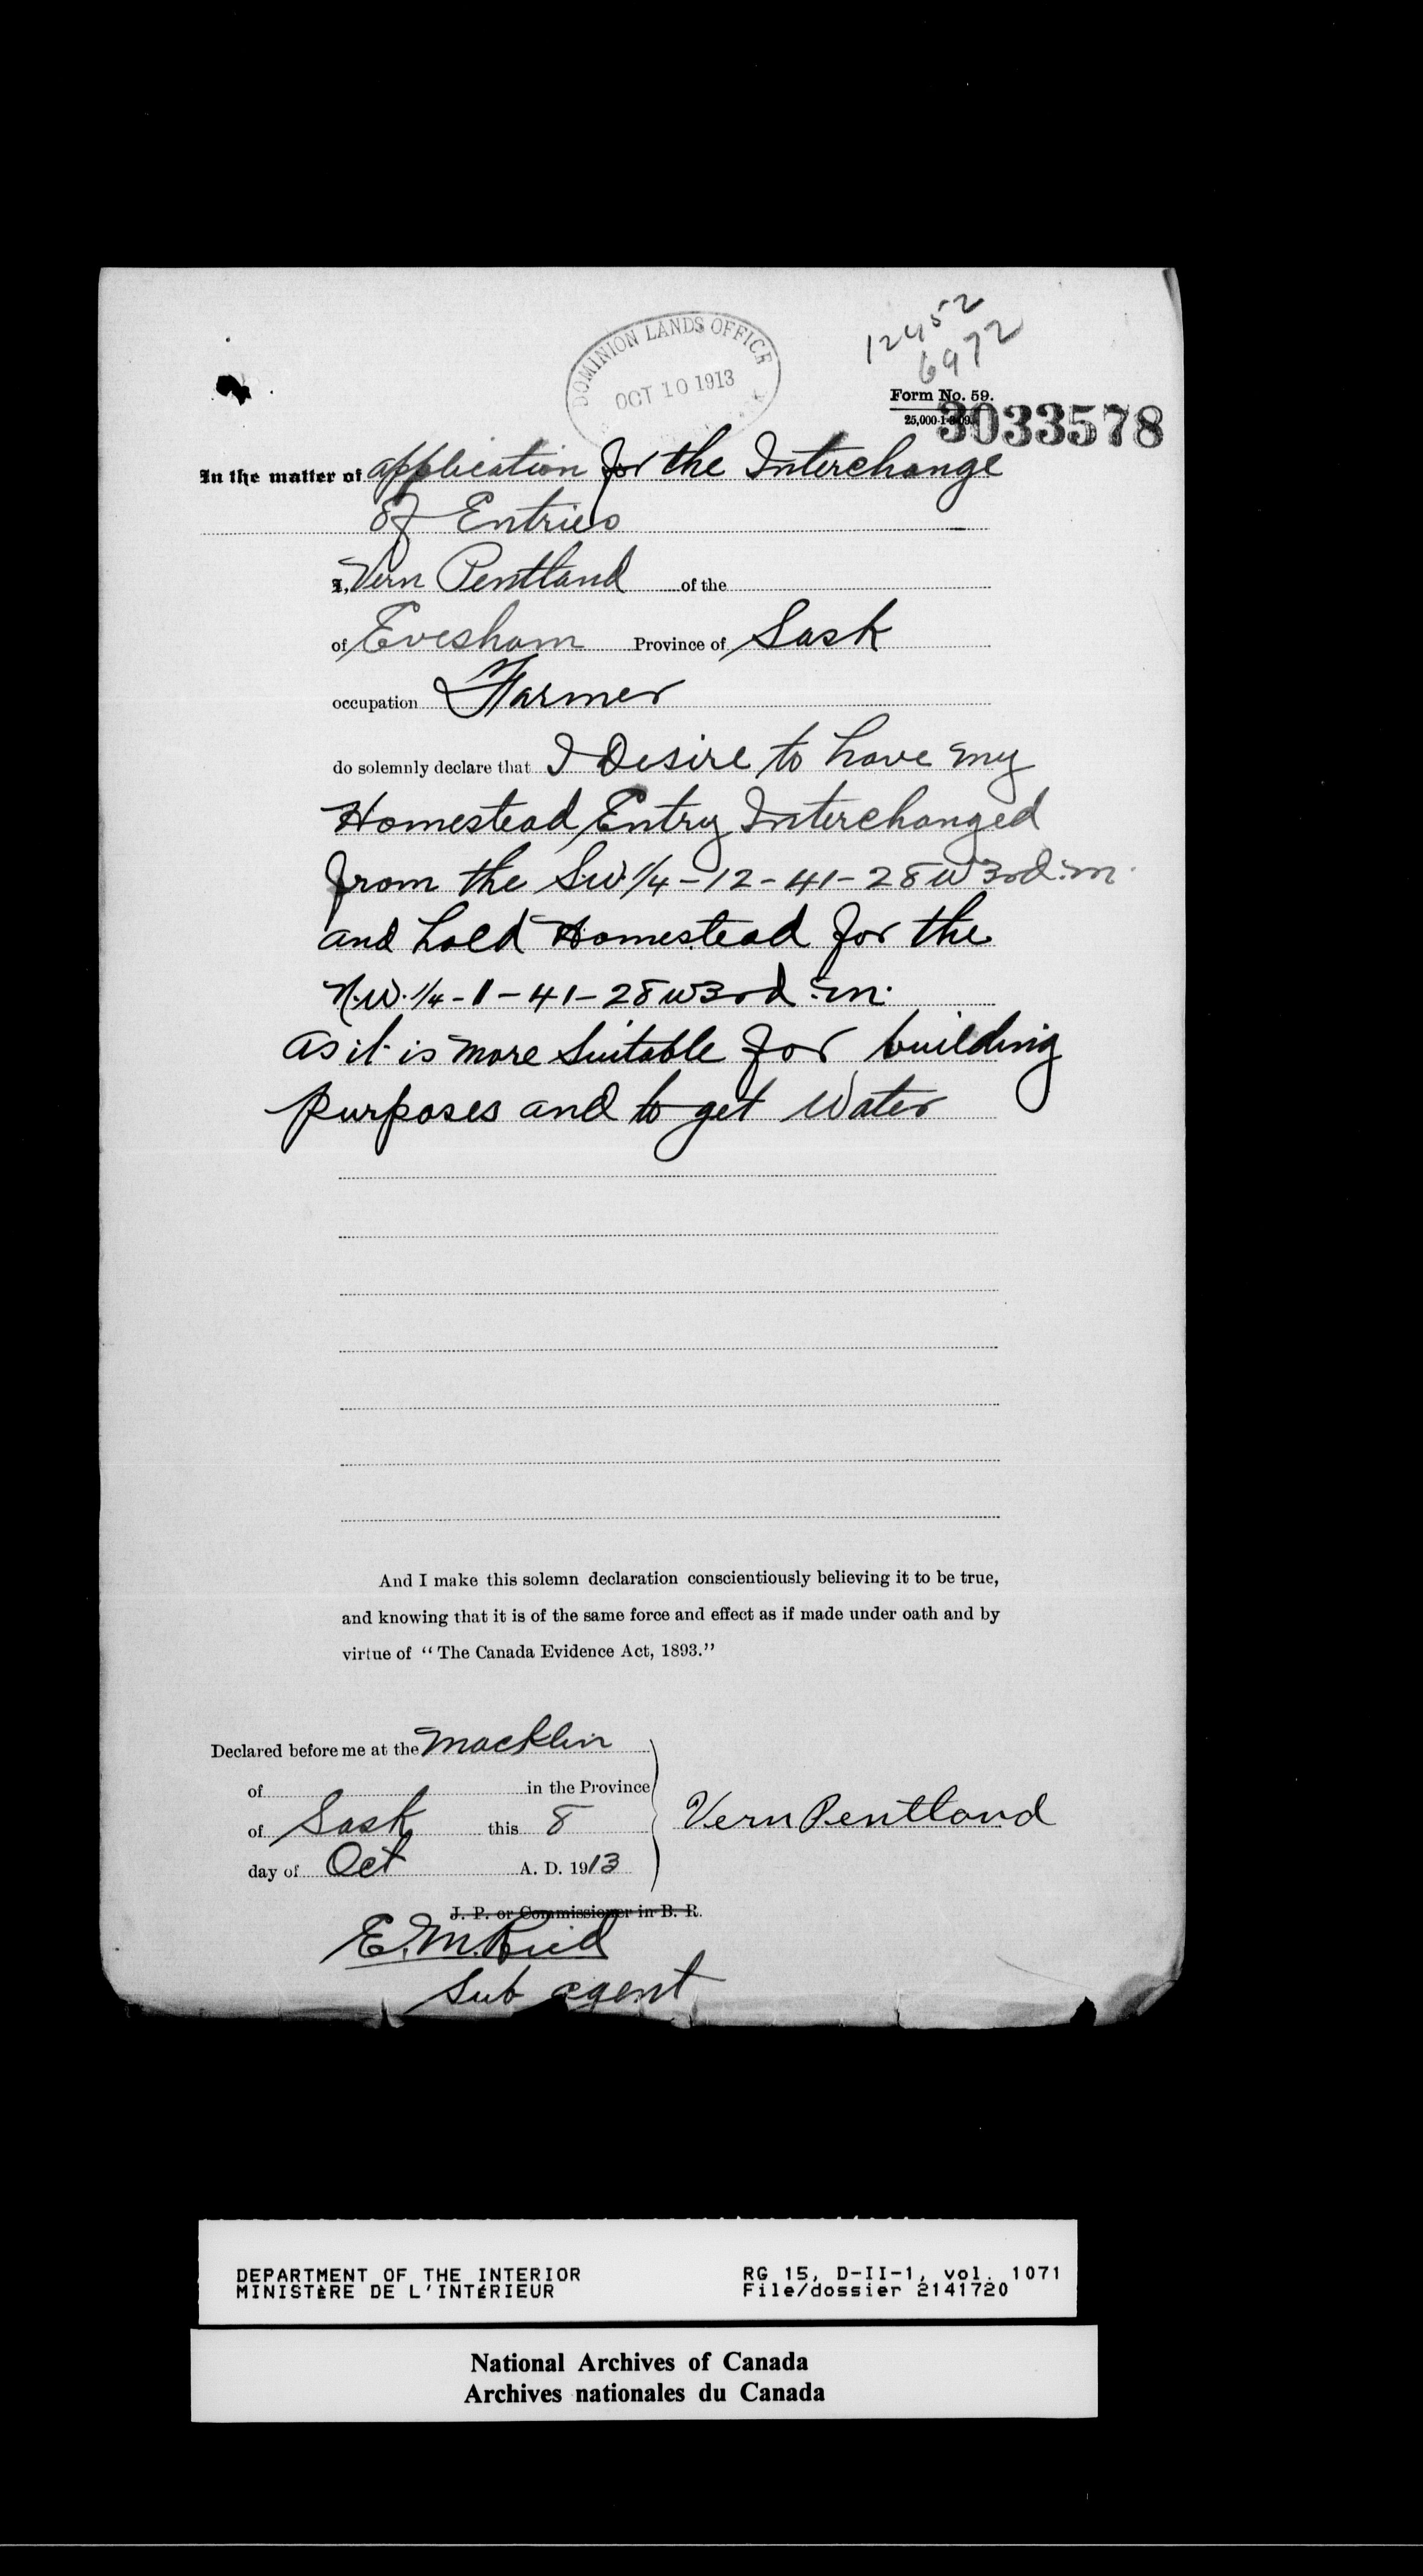 DOMINION LANDS OFFICE
OCT 10 1913
12452
6972
Form No. 59.
3033578
In the matter of application for the Interchange
Of Entries
I, Vern Pentland of the
of Evesham Province of Sask
occupation Farmer
do solemnly declare that I Desire to have my
Homestead Entry Interchanged
from the S.W. 1/4 - 12 - 41 - 28 W 3rd. m.
and hold Homestead for the
N.W. 1/4 - 1 - 41 - 28 W 3rd. m.
as it is more Suitable for building
purposes and to get Water
And I make this solemn declaration conscientiously believing it to be true,
and knowing that it is of the same force and effect as if made under oath and by
virtue of "The Canada Evidence Act, 1893."
Declared before me at the Macklin
of in the Province
of Sask this 8
Vern Pentland
day of Oct A. D. 1913
J. P. or Commissioner in B. R.
E. M. Reid
Sub agent
DEPARTMENT OF THE INTERIOR
MINISTÈRE DE L'INTÉRIEUR
RG 15, D-II-1, vol. 1071
File/dossier 2141720
National Archives of Canada
Archives nationales du Canada